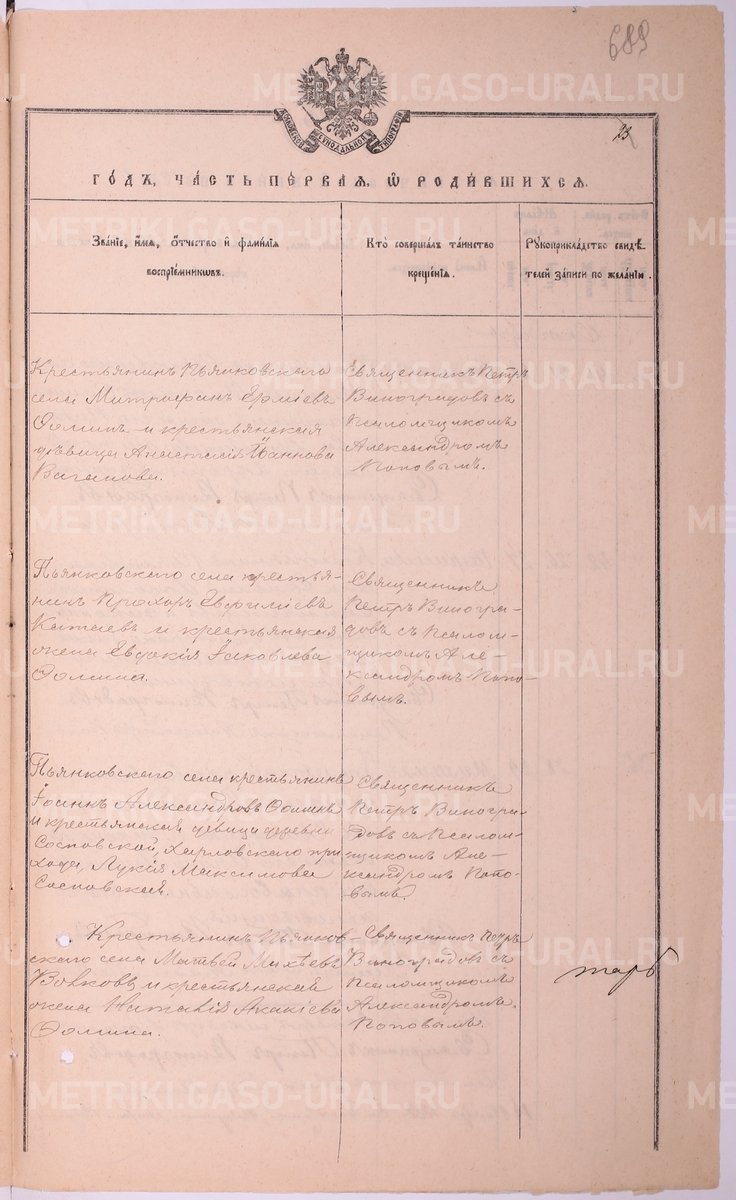 689
METRIKI.GASO-URAL.RU
23
МОСКОВСКОЙ СѴНОДАЛЬНОЙ ТИПОГРАФІИ
ГОДЪ, ЧАСТЬ ПЕРВАЯ, Ѡ РОДИВШИХСЯ.
Званіе, имя, отчество и фамилія
воспріемниковъ.
Кто совершалъ таинство
крещенія.
Рукоприкладство свидѣ
телей записи по желанію.
Крестьянинъ Пьянковскаго
села Митрофанъ Ерміевъ
Ѳоминъ и крестьянская
дѣвица Анастасія Іоаннова
Ваганова.
Священникъ Петръ
Виноградовъ съ
Псаломщикомъ
Александромъ
Поповымъ.
Пьянковскаго села крестья-
нинъ Прохоръ Евфиміевъ
Катаевъ и крестьянская
жена Евдокія Іаковлева
Ѳомина.
Священникъ
Петръ Виногра-
довъ съ Псалом-
щикомъ Але-
ксандромъ Попо-
вымъ.
Пьянковскаго села крестьянинъ
Іоаннъ Александровъ Ѳоминъ
и крестьянская дѣвица деревни
Сосновской, Харловскаго при
хода, Лукія Максимова
Сосновская.
Священникъ
Петръ Виногра-
довъ съ Псалом-
щикомъ Але-
ксандромъ Попо-
вымъ.
Крестьянинъ Пьянков-
скаго села Матвей Михѣевъ
Вовковъ и крестьянская
жена Наталія Акакіева
Ѳомина.
Священникъ Петръ
Виноградовъ съ
Псаломщикомъ
Александромъ
Поповымъ.
тарь